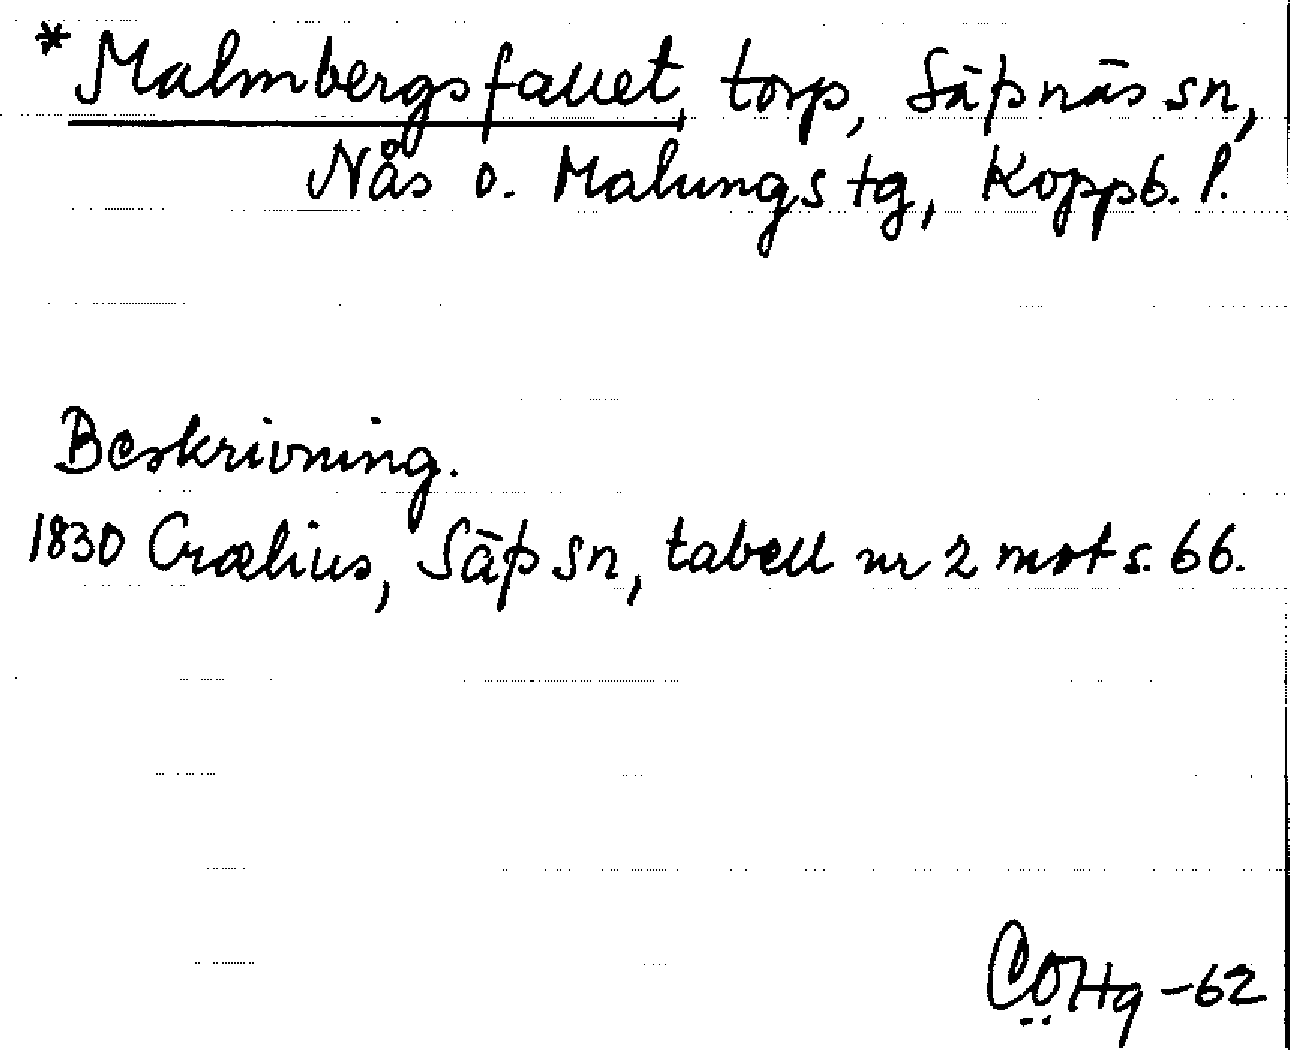 * Malmbergsfallet, torp, Säfsnäs sn,
Nås o. Malungs tg, Koppb. l.
Beskrivning.
1830 Crælius, Säfs sn, tabell nr 2 mot s. 66.
CÖHg -62